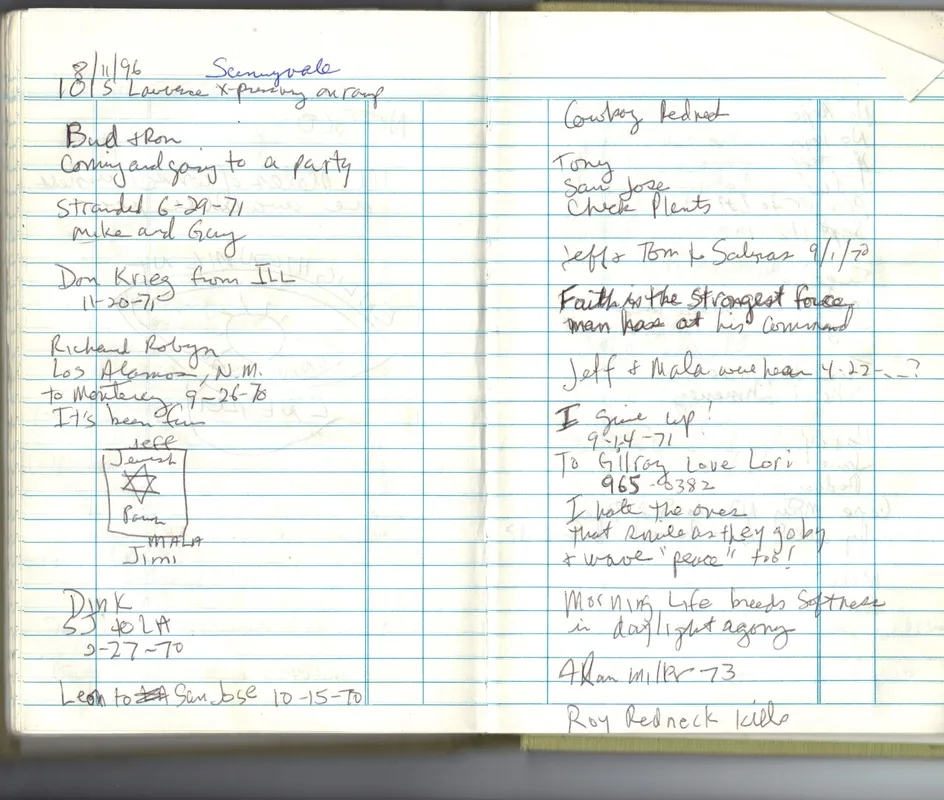 8/11/96 Sunnyvale
101 S Lawrence X-pressway onramp
Bud + Ron
Coming and going to a party
Stranded 6-29-71
Mike and Guy
Don Krieg from ILL
11-20-71
Richard Robyn
Los Alamos, N.M.
to Monterey 9-26-70
It's been fun
Jeff
Jewish
Power
MALA
Jimi
Dink
SJ to LA
2-27-70
Leon to San Jose 10-15-70
Cowboy Redneck
Tony
San Jose
Check Plents
Jeff & Tom to Salinas 9/1/70
Faith is the strongest force
man has at his command
Jeff & Mala were hear 4-22-__?
I give up!
9-14-71
To Gilroy Love Lori
965-0382
I hate the ones
that smile as they go by
+ wave "peace" too!
Morning Life breeds Softness
in daylight agony
Alan Miller 73
Roy Redneck kills